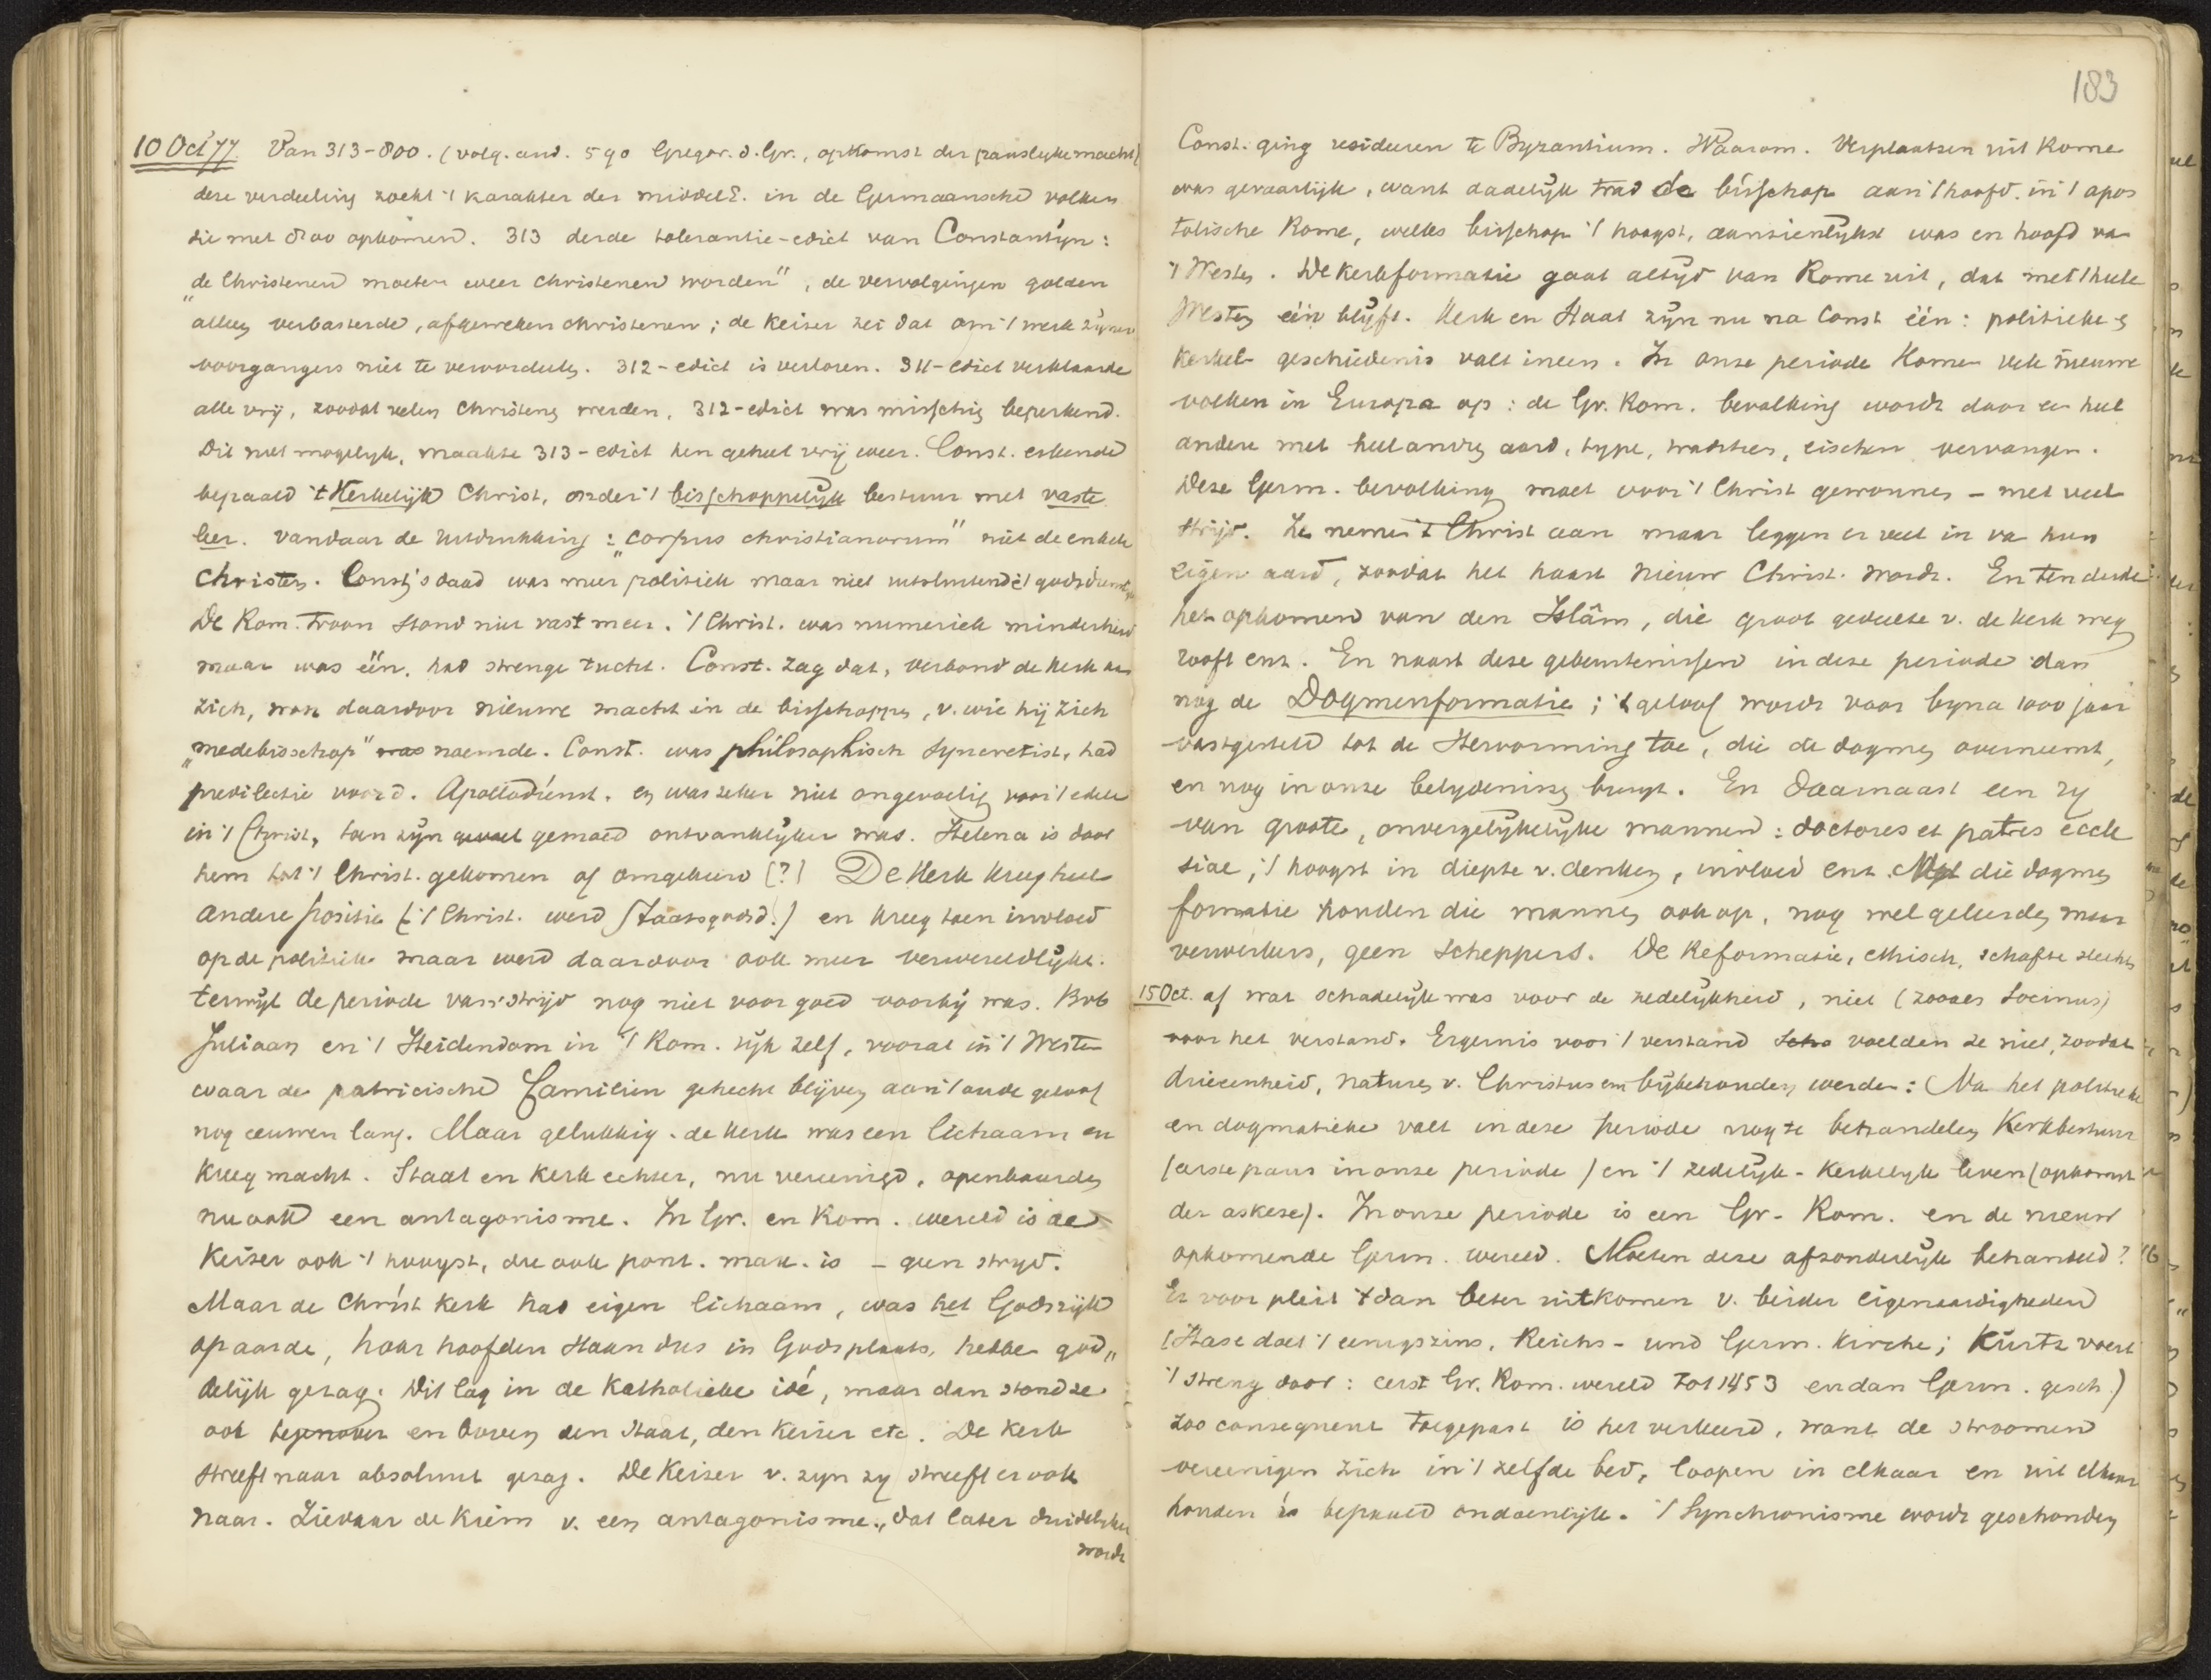 10 Oct '77 Van 313-800. (volg. and. 590 Gregor. d. Gr., opkomst der pauselyke macht)
deze verdeeling zoekt 't karakter der middelE. in de Germaansche volken
die met 800 opkomen. 313 derde tolerantie-edict van Constantijn:
„de Christenen moeten weer Christenen worden", de vervolgingen golden
alleen verbasterde, afgeweken christenen; de Keizer zei dat om 't werk zijner
voorgangers niet te veroordeelen. 312-edict is verloren. 311-edict verklaarde
alle vrij, zoodat velen Christens werden, 312-edict was misschien beperkend.
Dit niet mogelyk, maakte 313-edict hen geheel vrij weer. Const. erkende
bepaald 't Kerkelijk Christ. onder 't bisschoppelijk bestuur met vaste
leer. Vandaar de uitdrukking: „corpus christianorum" niet de enkele
Christen. Const's daad was meer politiek maar niet uitsluitend
De Rom. Troon stond niet vast meer. 't Christ. was numeriek minderheid
maar was één, had strenge tucht. Const. zag dat, verbond de kerk aan
zich, won daardoor nieuwe macht in de bisschoppen, v. wie hij zich
„medebisschop" was noemde. Const. was philosophisch syncretist, had
predilectie voor d. Apollodienst, en was zeker niet ongevoelig voor 't edele
in 't Christ, toen zijn gevoel gemoed ontvankelijker was. Helena is door
hem tot 't Christ. gekomen of omgekeerd [?] De Kerk kreeg heel
andere positie ('t Christ. werd Staatsgodsd.) en kreeg toen invloed
op de politiek maar werd daardoor ook meer verwereldlijkt.
terwijl de periode van strijd nog niet voor goed voorbij was. Bvb
Juliaan en 't Heidendom in 't Rom. rijk zelf, vooral in 't Westen
waar de patricische familiën gehecht blijven aan 't oude geloof
nog eeuwen lang. Maar gelukkig. de kerk was een lichaam en
kreeg macht. Staat en Kerk echter, nu vereenigd, openbaarden
nu ook een antagonisme. In Gr. en Rom. wereld is de
Keizer ook 't hoogst, die ook pont. max. is – geen strijd.
Maar de Christ kerk had eigen lichaam, was het Godsrijk
op aarde, haar hoofden staan dus in Gods plaats, hebben god„
delijk gezag. Dit lag in de Katholieke idé, maar dan stond ze
ook tegenover en boven den Staat, den Keizer etc. De Kerk
streeft naar absoluut gezag. De Keizer v. zyn zy streeft er ook
naar. Ziedaar de kiem v. een antagonisme, dat later duidelijker
wordt
183
Const. ging resideeren te Byzantium. Waarom. Verplaatsen uit Rome
was gevaarlijk, want dadelijk trad de bisschop aan 't hoofd in 't apos
tolische Rome, welks bisschop 't hoogst, aanzienlijkst was en hoofd van
't Westen. De kerkformatie gaat altijd van Rome uit, dat met 't heele
Westen één blijft. Kerk en Staat zijn nu na Const één: politieke en
kerkel. geschiedenis valt ineen. In onze periode komen vele nieuwe
volken in Europa op: de Gr. Rom. bevolking wordt door een heel
andere met heel andren aard, type, tradities, eischen vervangen.
Deze Germ. bevolking moet voor 't Christ gewonnen – met veel
strijd. Ze nemen 't Christ aan maar leggen er veel in van hun
eigen aard, zoodat het haast nieuw Christ. wordt. En ten derde
het opkomen van den Islâm, die groot gedeelte v. de kerk weg
rooft enz. En naast deze gebeurtenissen in deze periode dan
nog de Dogmenformatie; 't geloof wordt voor byna 1000 jaar
vastgesteld tot de Hervorming toe, die de dogmen overneemt,
en nog in onze belydenissen bruyt. En daarnaast een ry
van groote, onvergelijkelijke mannen: doctores et patres eccle
siae, 't hoogst in diepte v. denken, invloed enz. Met die dogmen
formatie houden die mannen ook op, nog wel geleerden maar
verwerkers, geen scheppers. De Reformatie, ethisch, schafte slechts
15 Oct. af wat schadelijk was voor de zedelijkheid, niet (zooals Socinus)
voor het verstand. Ergernis voor 't verstand voelden ze niet, zoodat
drieeenheid, naturen v. Christus enz bijbehouden werden: Na het politieke
en dogmatieke valt in deze periode nog te behandelen Kerkbestuur
(eerste paus in onze periode) en 't zedelijk-kerkelijk leven (opkomst
der askese). In onze periode is een Gr-Rom. en de nieuw
opkomende Germ. wereld. Moeten deze afzonderlijk behandeld?
Er voor pleit 't dan beter uitkomen v. beider eigenaardigheden
(Hase doet 't eenigszins, Reichs- und Germ. Kirche; Kurtz voert
't streng door: eerst Gr. Rom. wereld tot 1453 en dan Germ. gesch.)
Zoo consequent toegepast is het verkeerd, want de stroomen
vereenigen zich in 't zelfde bed, loopen in elkaar en uit elkaar
houden is bepaald ondoenlijk. 't Synchronisme wordt geschonden